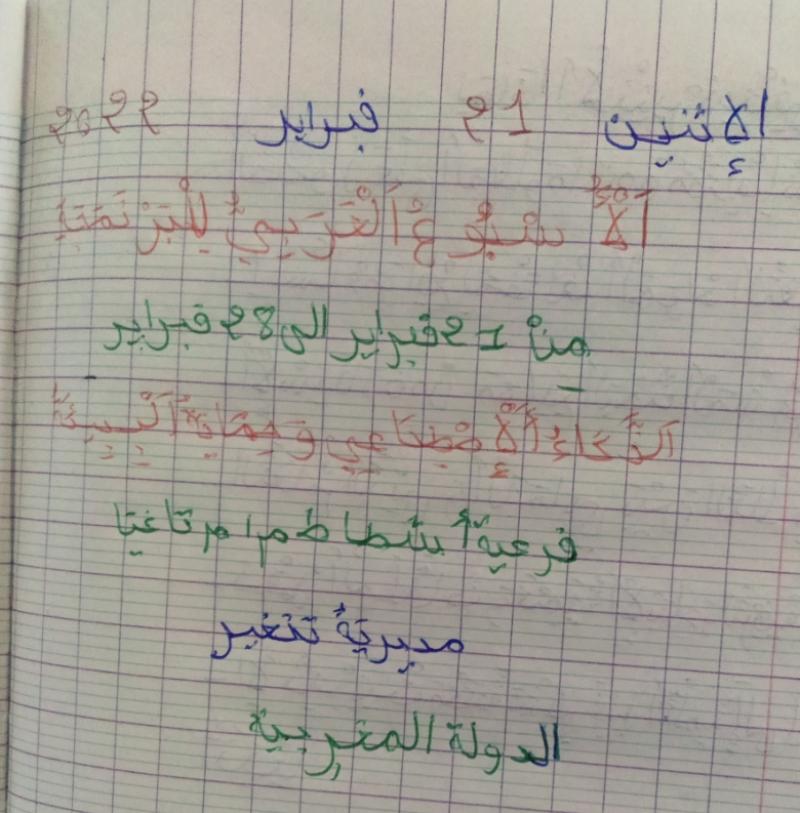 الإثنين 21 فبراير 2022
اَلْأُسْبُوعُ اَلْعَرَبِيُّ لِلْبَرْمَجَةِ
من 21 فبراير الى 28 فبراير
اَلذَّكَاءُ اَلْاِصْطِنَاعِي وَحِمَايَةُ اَلْبِيئَةِ
فرعية
مديرية تنغير
الدولة المغربية